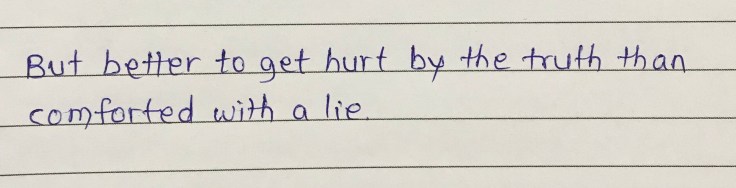 But better to get hurt by the truth than
comforted with a lie.